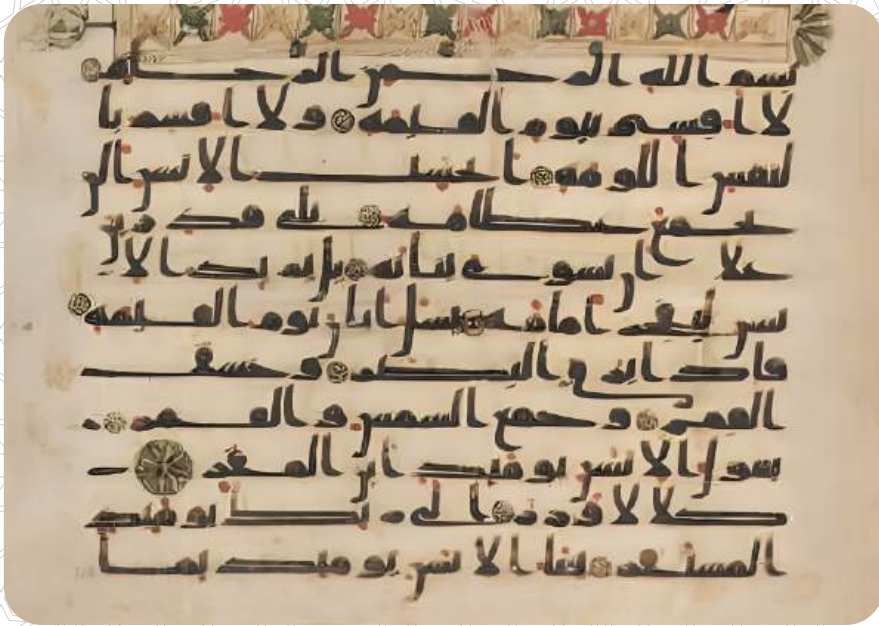 بسم الله الرحمن الرحيم
لا اقسم بيوم القيمه و لا اقسم با
لنفس اللومه ايحسب الانسن الن
نجمع عظامه بلى قدرين
على ان نسوى بنانه بل يريد الا
نسن ليفجر امامه يسل ايان يوم القيمه
فاذا برق البصر و خسف
القمر و جمع الشمس و القمر
يقول الانسن يومئذ اين المفر
كلا لا وزر الى ربك يومئذ
المستقر ينبا الانسن يومئذ بما